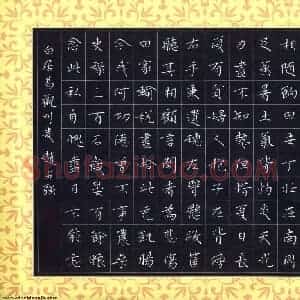 相隨餉田去丁壯在南岡
足蒸暑土氣背灼炎天光
力盡不知熱但惜夏日長
復有貧婦人抱子在其旁
右手秉遺穗左臂懸敝筐
聽其相顧言聞者為悲傷
田家輸稅盡拾此充飢腸
今我何功德曾不事農桑
吏祿三百石歲晏有餘糧
念此私自愧盡日不能忘
白居易觀刈麦